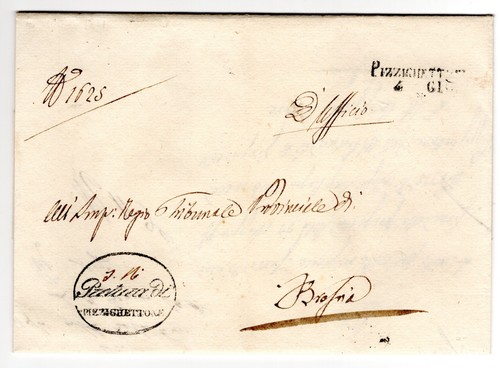 PIZZIGHETTONE
4 GIU
N 1625
D'Ufficio
All' Imp: Regio Tribunale Provinciale di
Brescia
Pretura Di
PIZZIGHETTONE